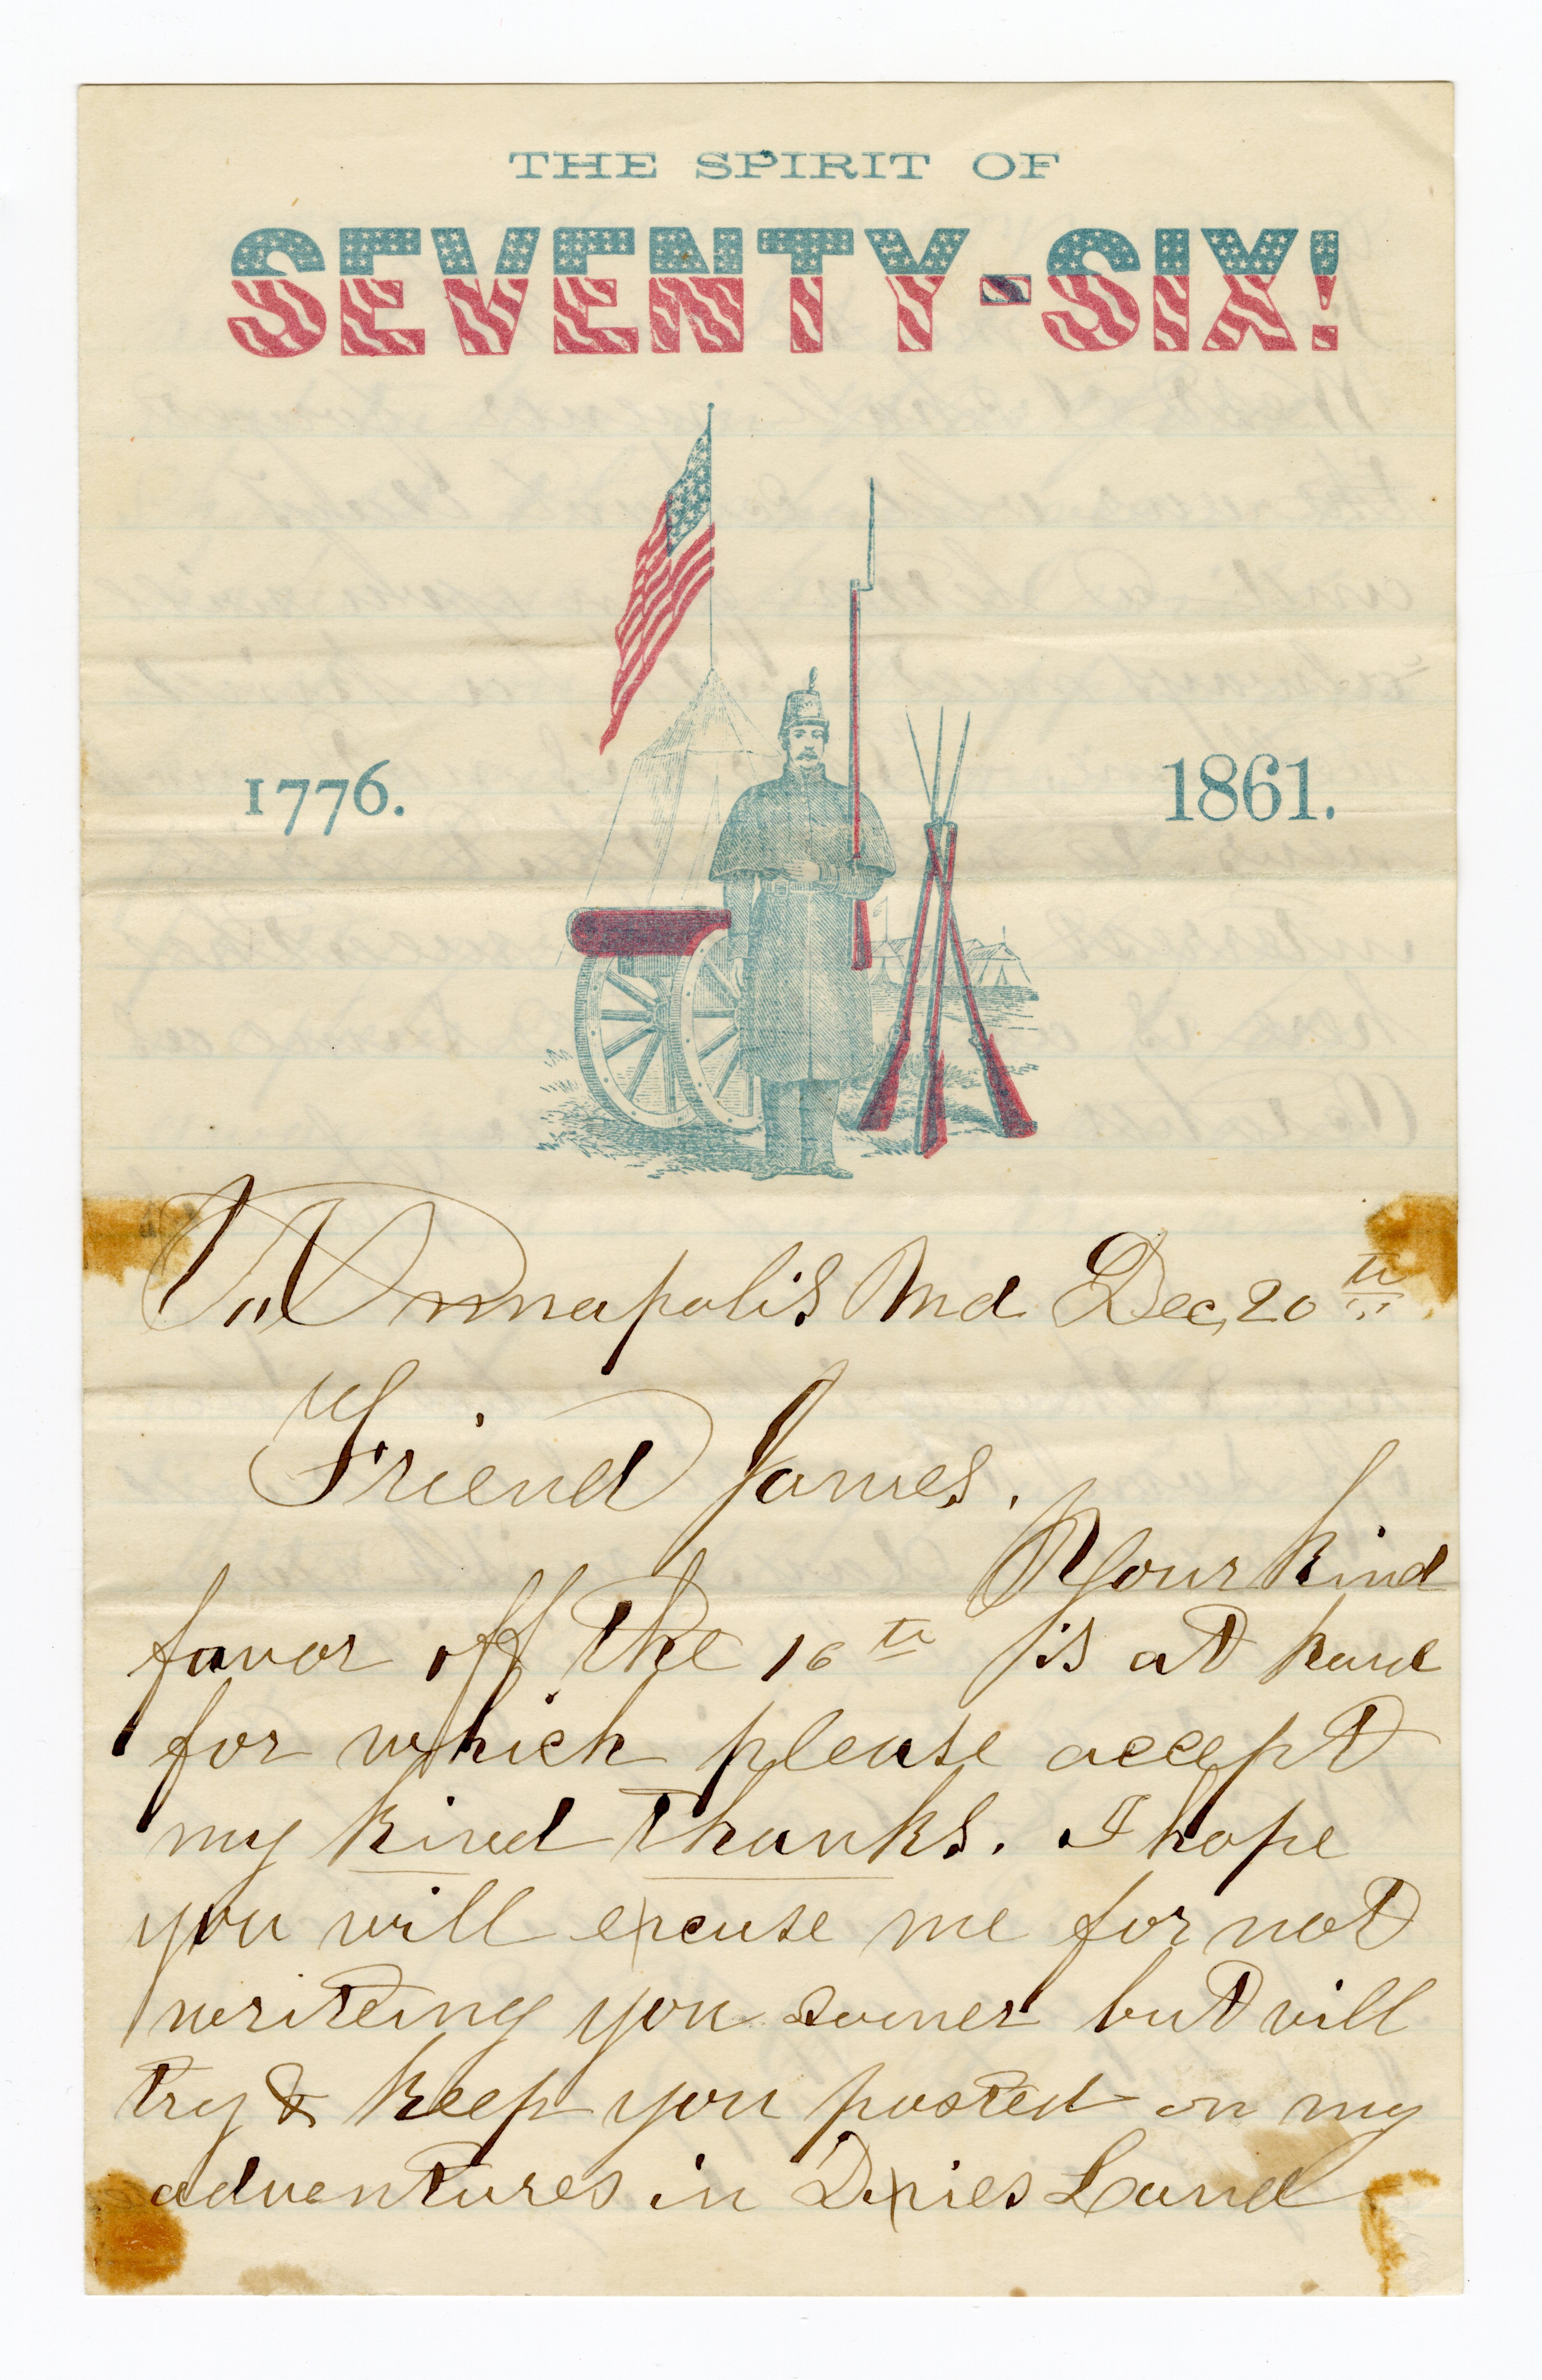 THE SPIRIT OF
SEVENTY-SIX!
1776.
1861.
Annapolis Md Dec, 20th
Friend James.
Your kind
favor off the 16th is at hand
for which please accept
my kind thanks. I hope
you will excuse me for not
writeing you sooner but will
try & keep you posted on my
adventures in Dixies Land